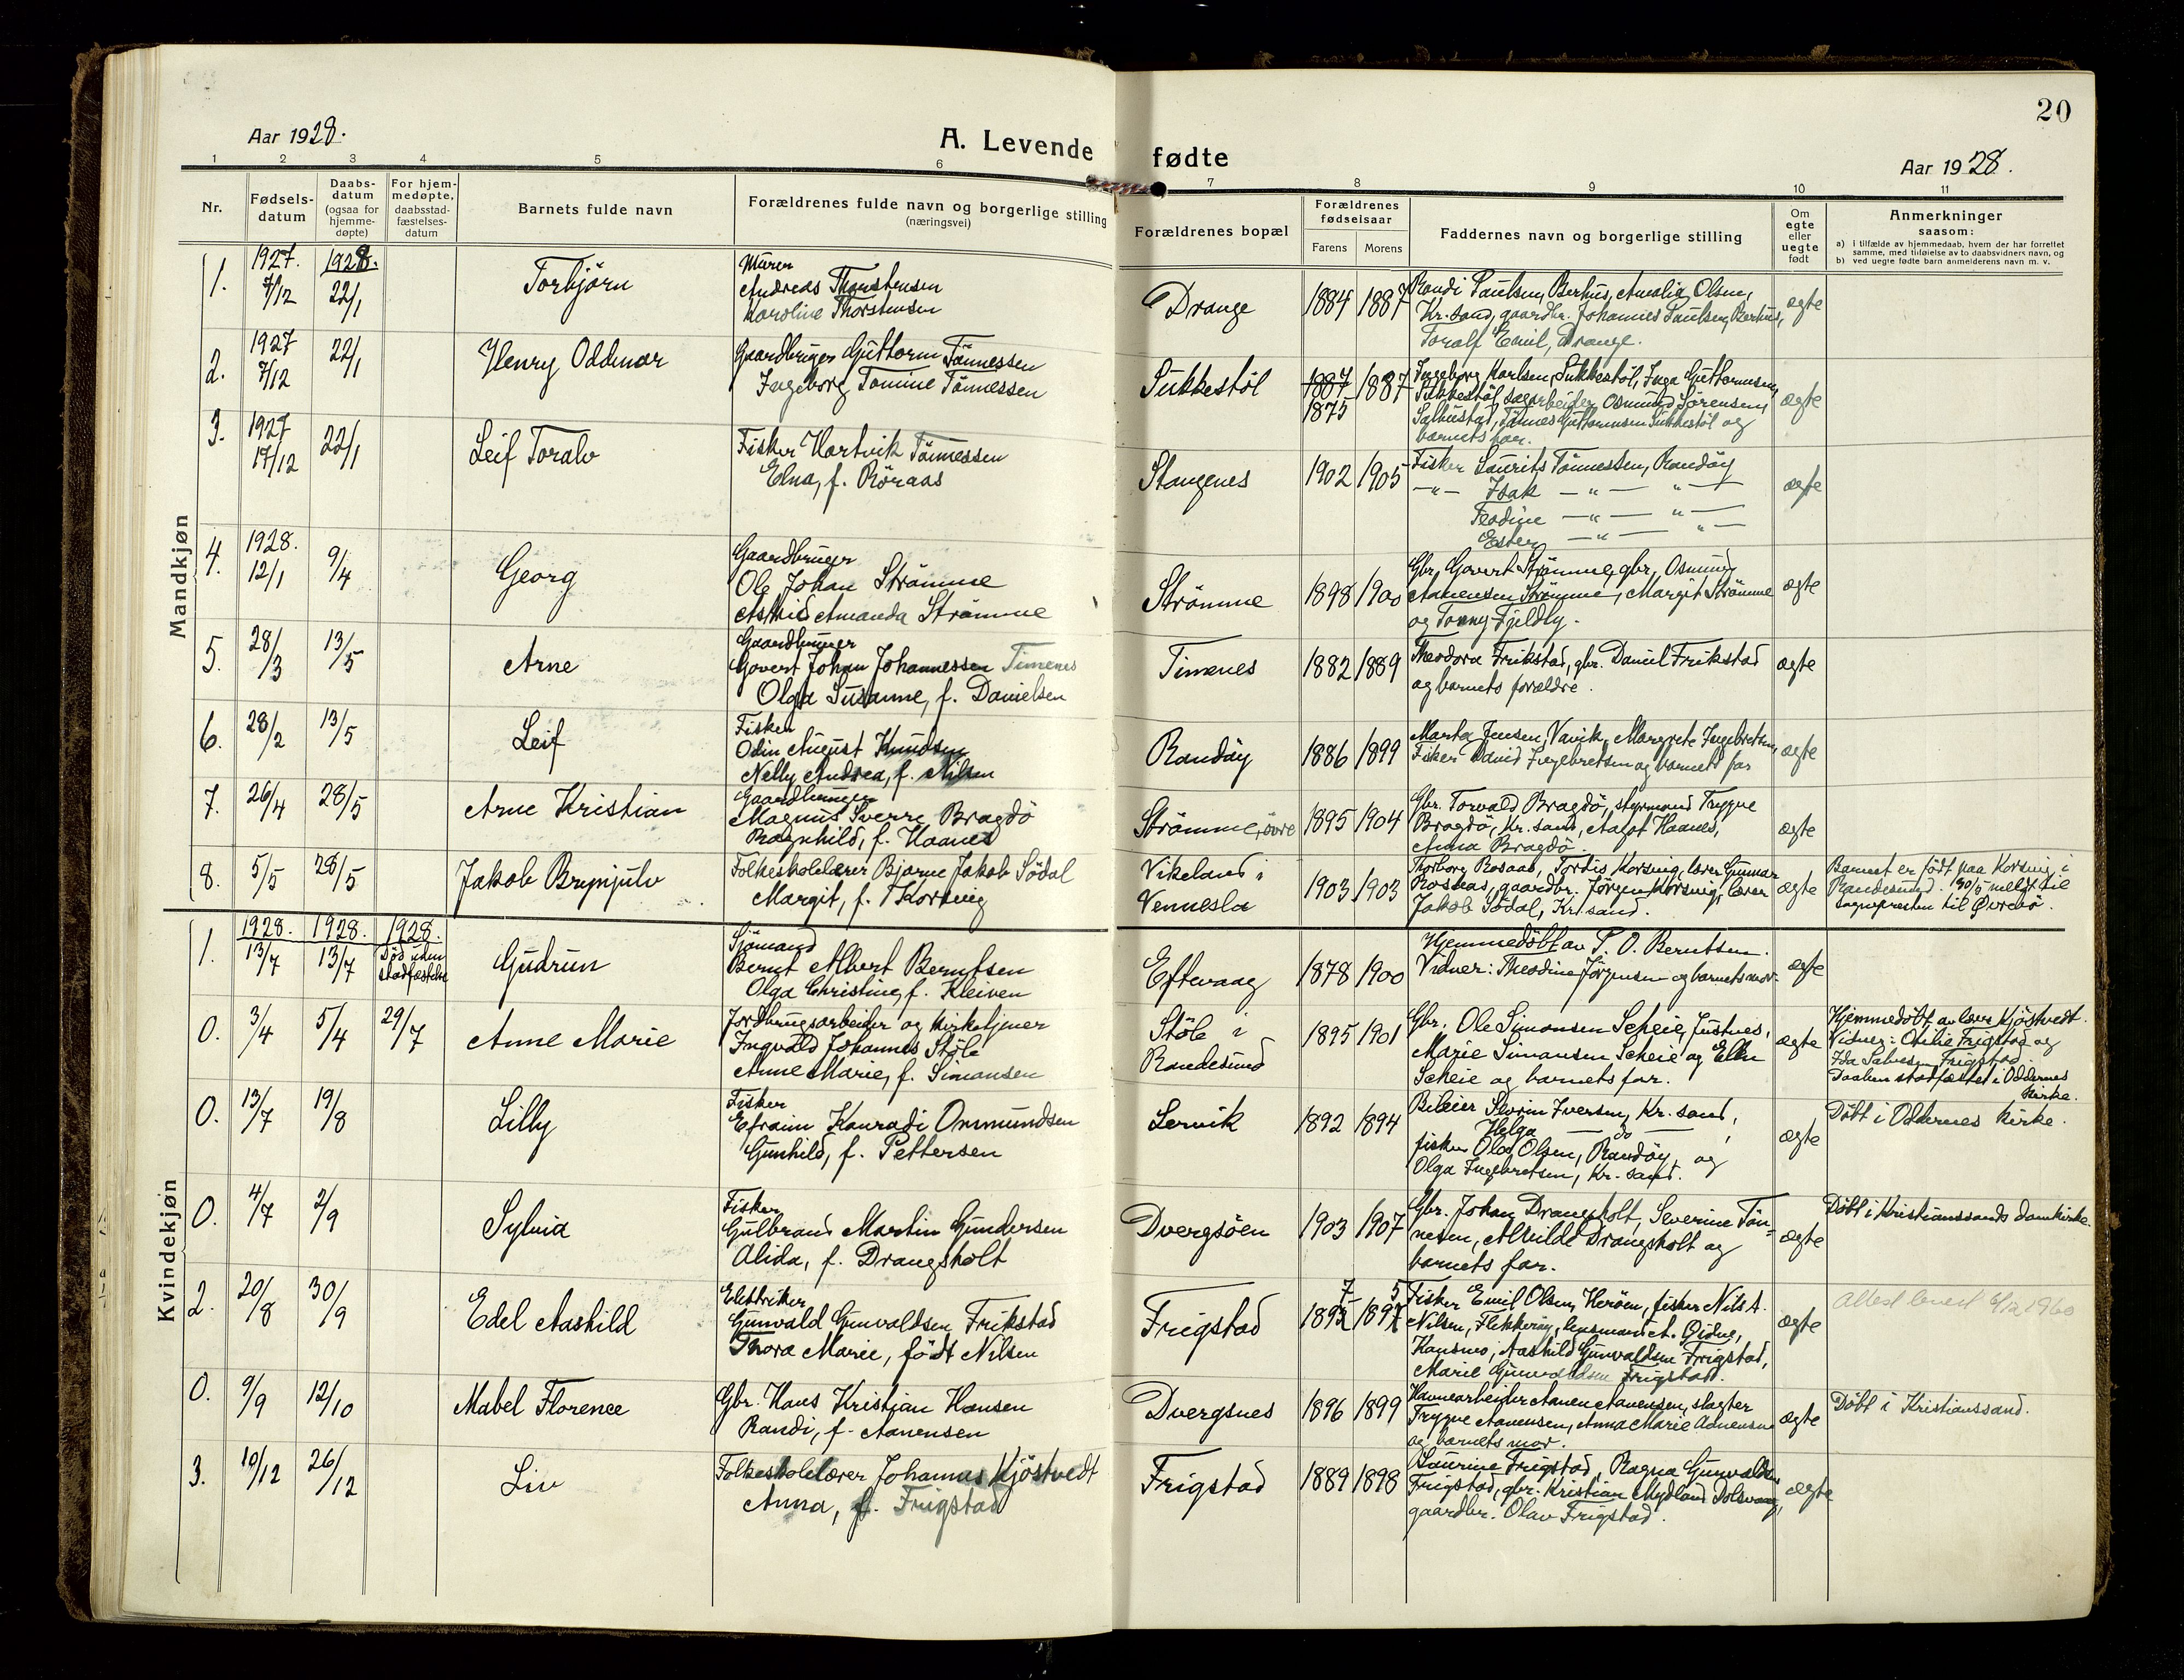 20
Aar 1928.
A. Levende fødte
Aar 1928.
1 2 3 4 5 6 7 8 9 10 11
Nr.
Fødsels-
datum
Daabs-
datum
(ogsaa for
hjemme-
døpte)
For hjem-
medøpte,
daabsstad-
fæstelses-
datum
Barnets fulde navn
Forældrenes fulde navn og borgerlige stilling
(næringsvei)
Forældrenes bopæl
Forældrenes
fødselsaar
Farens Morens
Faddernes navn og borgerlige stilling
Om
egte
eller
uegte
født
Anmerkninger
saasom:
a) i tilfælde av hjemmedaab, hvem der har forrettet
samme, med tilføielse av to daabsvidners navn, og
b) ved uegte fødte barn anmelderens navn m. v.
Mandkjøn
1. 1927. 7/12 1928. 22/1 Torbjörn
Murer
Andreas Thorstensen
Karoline Thorstensen
Drange 1884 1887
Randi Paulsen, Berhus, Amalia Olsen,
Kr.sand, gaardbr. Johannes Paulsen, Berhus,
Toralf Emil, Drange.
ægte
2. 1927 7/12 22/1 Henry Oddmar
Gaardbruger Guttorm Tönnessen
Ingeborg Tomine Tönnessen
Sukkestöl 1887 1875 1887
Ingeborg Karlsen, Sukkestöl, Inga Guttormsen,
Sukkestöl, sagarbeider Osmund Sörensen,
Tönnes Guttormsen Sukkestöl og
barnets far.
ægte
3. 1927 17/12 22/1 Leif Toralv
Fisker Hartvik Tönnessen
Elna, f. Röraas
Stangenes 1902 1905
Fisker Laurits Tönnessen, Randöy
—"— Isak —"— "—
Teodine —"— "—
Ester —"— "—
ægte
4. 1928. 12/1 9/4 Georg
Gaardbruger
Ole Johan Strömme
Astrid Amanda Strömme
Strömme 1898 1900
Gbr. Govert Strömme, gbr. Osmund
Aanensen Strömme, Margit Strömme
og Tonny Fjeldly.
ægte
5. 28/3 13/5 Arne
Gaardbruger
Govert Johan Johannessen Timenes
Olga Susanne, f. Danielsen
Timenes 1882 1889
Theodora Frikstad, gbr. Daniel Frikstad
og barnets forældre.
ægte
6. 28/2 13/5 Leif
Fisker
Odin August Knudsen
Nelly Andrea, f. Nilsen
Randöy 1886 1899
Marta Jensen, Vavik, Margrete Ingebretsen,
Fisker David Ingebretsen og barnets far
ægte
7. 26/4 28/5 Arne Kristian
Gaardbruger
Magnus Sverre Bragdö
Ragnhild, f. Haanes
Strömme, övre 1895 1904
Gbr. Torvald Bragdö, styrmand Trygve
Bragdö, Kr.sand, Aagot Haanes,
Anna Bragdö.
ægte
8. 5/5 28/5 Jakob Brynjulv
Folkeskolelærer Bjarne Jakob Södal
Margit, f. Korsvig
Vikeland i
Vennesla
1903 1903
Thorborg Rosaas, Tordis Korsvig, lærer Gunnar
Rosaas, gaardbr. Jörgen Korsvig, lærer
Jakob Södal, Kr.sand.
ægte
Barnet er född paa Korsvig i
Randesund. 30/5 meldt til
sognepresten til Øvrebö.
Kvindekjøn
1. 1928. 13/7 1928. 13/7 1928.
Död uden
stadfæstelse
Gudrun
Sjömand
Bernt Albert Berntsen
Olga Christine, f. Kleiven
Eftevaag 1878 1900
Hjemmedöbt av T. O. Berntsen.
Vidner: Theodine Jörgensen og barnets mor.
ægte
0. 3/4 5/4 29/7 Anne Marie
Jordbrugsarbeider og kirketjener
Ingvald Johannes Stöle
Anne Marie, f. Simonsen
Stöle i
Randesund
1895 1901
Gbr. Ole Simonsen Scheie, Justnes,
Marie Simonsen Scheie og Ellen
Scheie og barnets far.
ægte
Hjemmedöbt av lærer Kjöstvedt.
Vidner: Otilie Frigstad og
Ida Salvesen Frigstad.
Daaben stadfæstet i Oddernes
kirke.
0. 13/7 19/8 Lilly
Fisker
Efraim Konradi Ommundsen
Gunhild, f. Pettersen
Lervik 1892 1894
Bileier Severin Iversen, Kr. sand,
Helga — do —,
fisker Olaf Olsen, Randöy, og
Olga Ingebretsen, Kr. sand.
ægte
Döbt i Oddernes kirke.
0. 4/7 2/9 Sylvia
Fisker
Gulbrand Martin Gundersen
Alida, f. Drangsholt
Dvergsöen 1903 1907
Gbr. Johan Drangsholt, Severine Tön-
nesen, Alvilde Drangsholt og
barnets far.
ægte
Döbt i Kristianssands domkirke.
2. 20/8 30/9 Edel Aashild
Elektriker
Gunvald Gunvaldsen Frikstad
Thora Marie, født Nilsen
Frigstad 1897 1895
Fisker Emil Olsen, Heröen, fisker Nils A.
Nilsen, Flekkeröy, lensmand A. Øidne,
Aashild Gunvaldsen Frigstad,
Marie Gunvaldsen Frigstad.
ægte
Attest levert 6/12 1960
0. 9/9 12/10 Mabel Florence
Gbr. Hans Kristian Hansen
Randi, f. Aanensen
Dvergsnes 1896 1899
Havnearbeider Aanen Aanensen, slagter
Trygve Aanensen, Anna Marie Aanensen
og barnets mor.
ægte
Döbt i Kristianssand.
3. 10/12 26/12 Liv
Folkeskolelærer Johannes Kjöstvedt
Anna, f. Frigstad
Frigstad 1889 1898
Laurine Frigstad, Ragna Gunvaldsen
Frigstad, gbr. Kristian Mydland Dolsvaag,
gaardbr. Olav Frigstad.
ægte